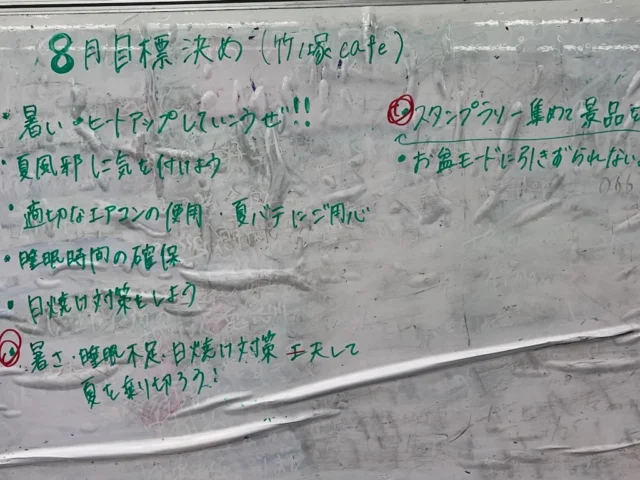 8月目標決め(竹ノ塚cafe)
・暑い・ヒートアップしていこうぜ!!
・夏風邪に気を付けよう
・適切なエアコンの使用・夏バテにご用心
・睡眠時間の確保
・日焼け対策をしよう
暑さ・睡眠不足・日焼け対策 工夫して
夏を乗り切ろう!
スタンプラリー集めて景品を
・お盆モードに引きずられない。